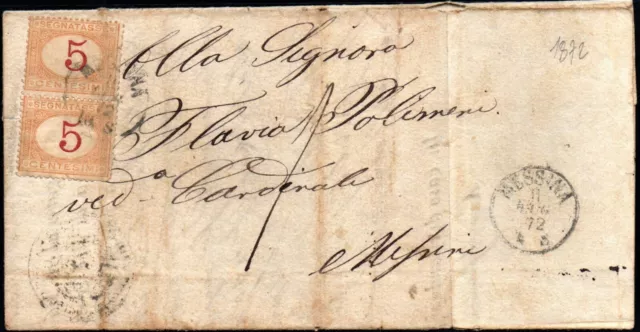 SEGNATASSE
5
CENTESIMI
SEGNATASSE
5
CENTESIMI
Alla Signora
Flavia Polimeni
ved.a Cardinale
Messina
1872
MESSINA
11
72